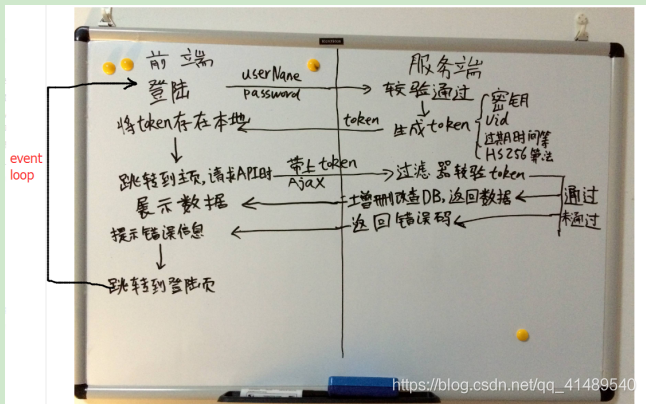 前端
服务端
登陆
userName
password
较验通过
密钥
uid
过期时间等
HS256算法
生成token
token
将token存在本地
event
loop
跳转到主页,请求API时
带上token
Ajax
过滤器较验token
展示数据
增删改查DB,返回数据
通过
提示错误信息
返回错误码
未通过
跳转到登陆页
https://blog.csdn.net/qq_41489540